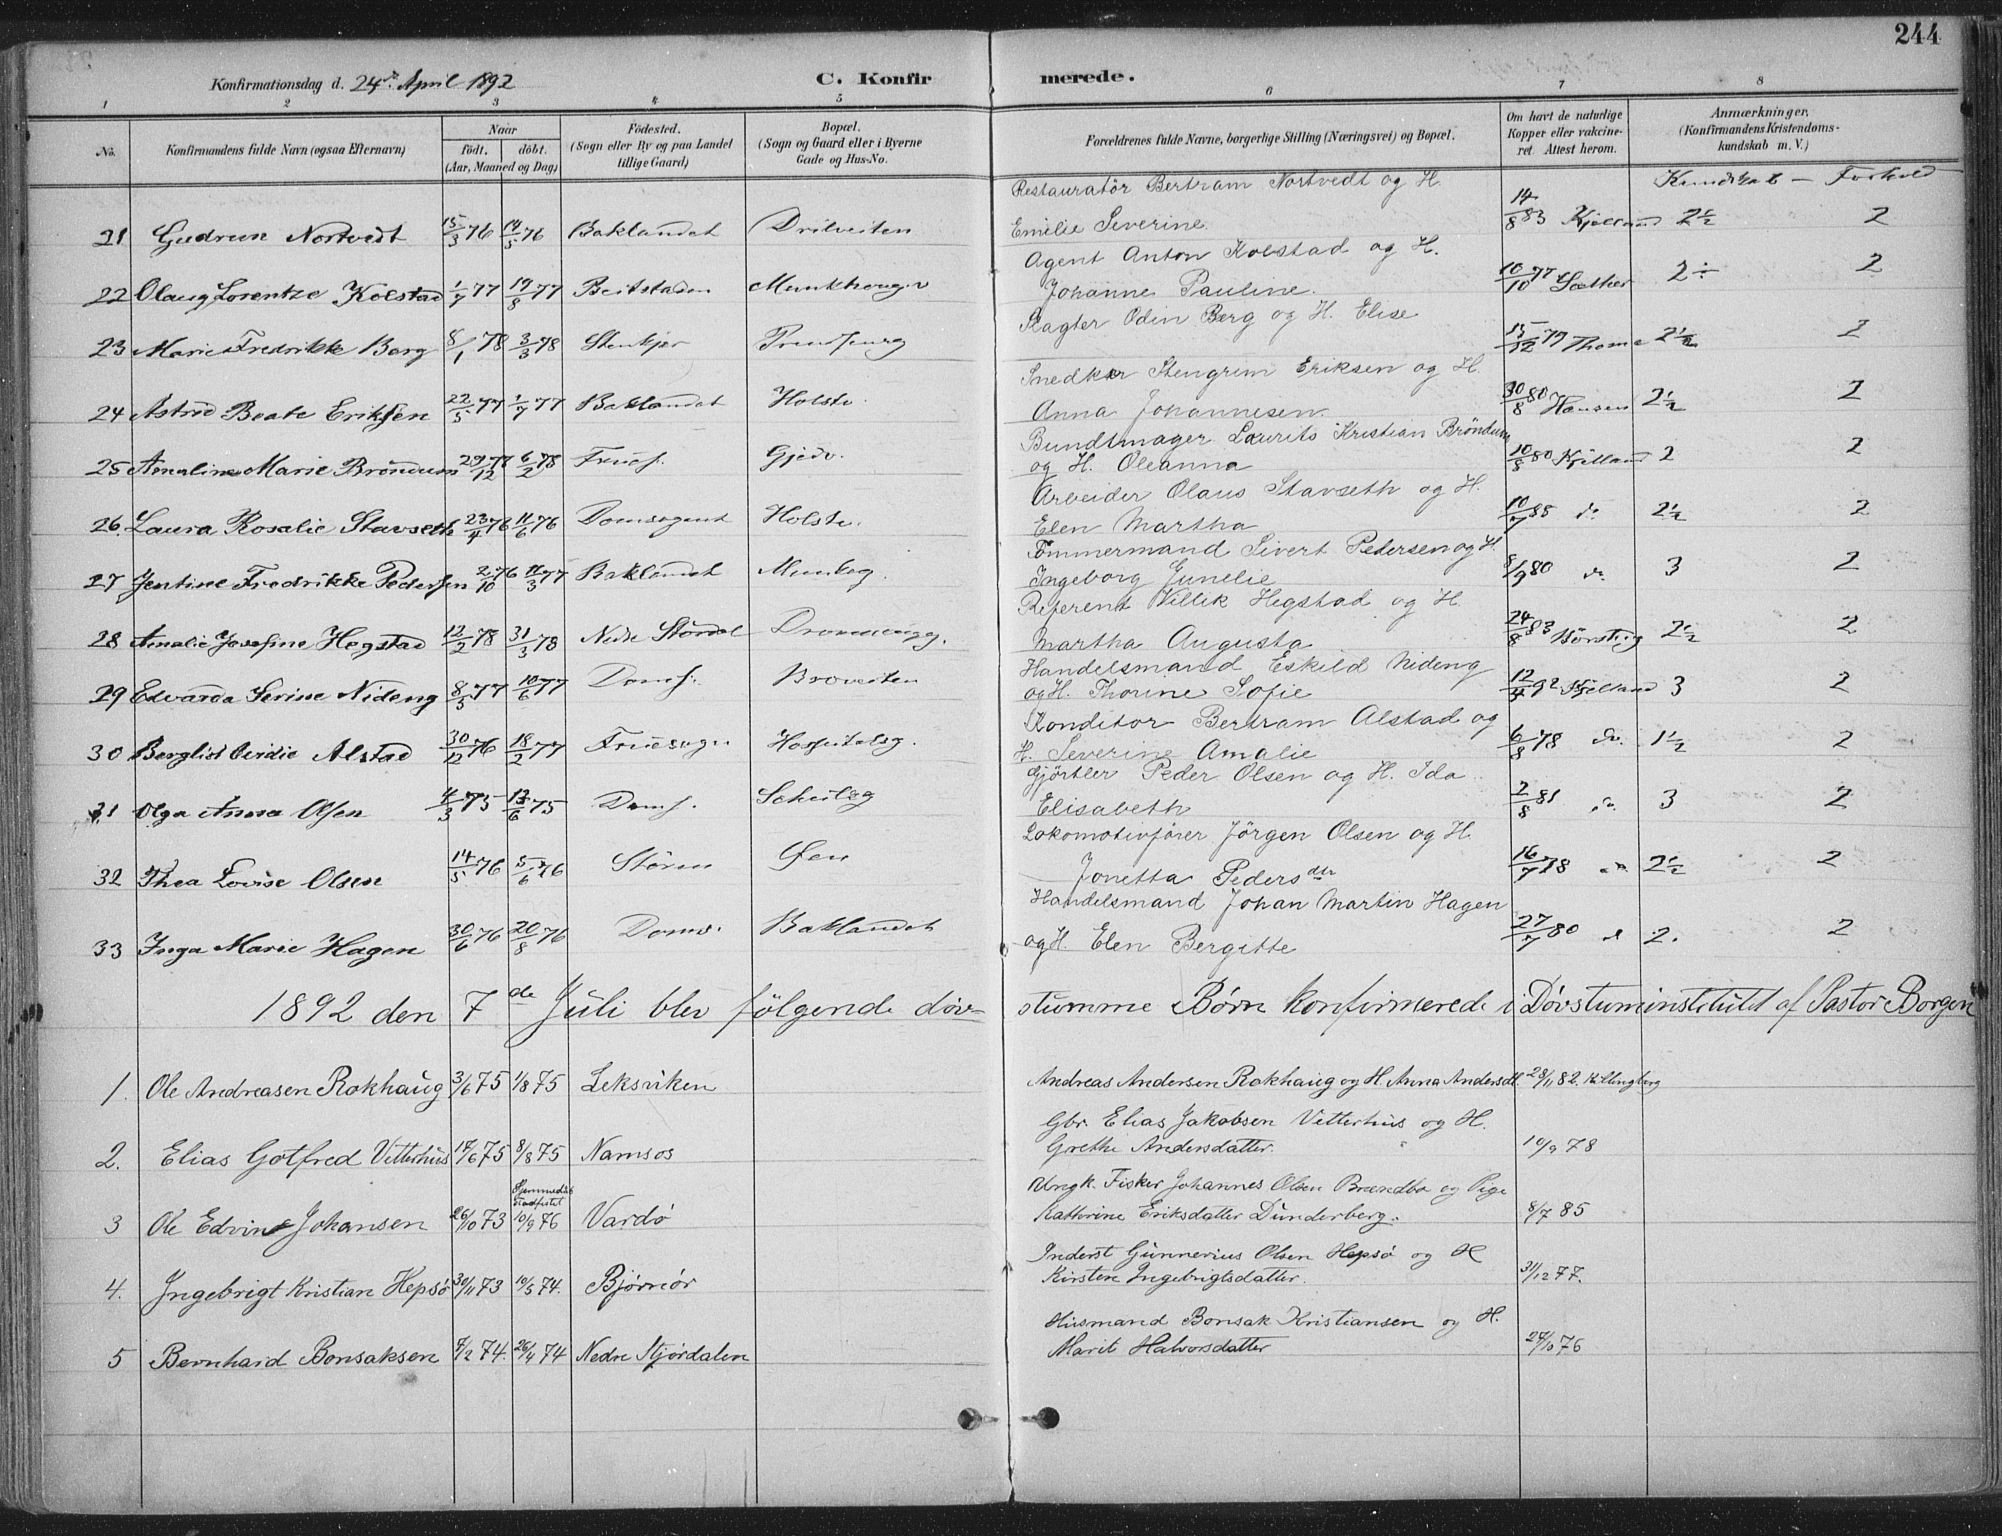 244
Konfirmationsdag d. 24de April 1892
C. Konfirmerede.
1 2 3 4 5 6 7 8
No. Konfirmandens fulde Navn (ogsaa Efternavn) Naar födt. döbt. (Aar, Maaned og Dag) Födested. (Sogn eller By og paa Landet tillige Gaard) Bopæl. (Sogn og Gaard eller i Byerne Gade og Hus-No. Forældrenes fulde Navne, borgerlige Stilling (Næringsvei) og Bopæl. Om havt de naturlige Kopper eller vakcineret. Attest herom. Anmærkninger. (Konfirmandens Kristendomskundskab m. V.)
Kundskab — Forhold
Restauratör Bertram Nortvedt og H.
21 Gudrun Nortvedt 15/3 76 14/5 76 Baklandet Drilveiten Emilie Severine. 14/8 83 Kjelland 2 1/2 2
Agent Anton Kolstad og H.
22 Olaug Lorentze Kolstad 1/7 77 19/8 77 Beitstaden Munkhaugv Johanne Pauline. 10/10 77 Sæther 2 ÷ 2
Slagter Odin Berg og H. Elise
23 Marie Fredrikke Berg 8/1 78 3/3 78 Stenkjer 15/12 79 Thome 2 1/2 2
Snedker Stengrim Eriksen og H.
24 Astrid Beate Eriksen 22/5 77 1/7 77 Baklandet Holstv. Anna Johannesen. 30/8 80 Hansen 2 1/2 2
Bundtmager Laurits Kristian Bröndum
25 Amaline Marie Bröndum 29/12 77 6/2 78 Frues. Gjedv. og H. Oleanna 10/8 80 Kjelland 2 2
Arbeider Olaus Stavseth og H.
26. Laura Rosalie Stavseth 23/4 76 11/6 76 Domsognet Holstv. Elen Martha 10/7 85 do. 2 1/2 2
Tömmermand Sivert Pedersen og H.
27 Jentine Fredrikke Pedersen 2/10 76 11/3 77 Baklandet Munkeg. Ingeborg Junelie 8/9 80 do. 3 2
Referent Villik Hegstad og H
28 Amalie Josefine Hegstad 12/2 78 31/3 78 Nedre Stördal Dronningg. Martha Augusta 24/8 83 Börstig 2 1/2 2
Handelsmand Eskild Nideng
29 Edvarda Serine Nideng 8/3 77 10/6 77 Doms. Broveiten og H. Thorine Sofie 12/4 92 Kjelland 3 2
Konditor Bertram Alstad og
30 Bergliot Ovidie Alstad 30/12 76 18/2 77 Fruesogn Hospitalsg. H. Severine Amalie 6/8 78 do. 1 1/2 2
Gjörtler Peder Olsen og H. Ida
31 Olga Anna Olsen 4/3 75 13/6 75 Doms. Schultzg Elisabeth 2/8 81 do. 3 2
Lokomotivfører Jörgen Olsen og H.
32 Thea Lovise Olsen 14/5 76 5/6 76 Stören Øen Jonetta Pedersdtr 16/7 78 do 2 1/2 2
Handelsmand Johan Martin Hagen
33 Inga Marie Hagen 30/6 76 20/8 76 Doms. Baklandet og H. Elen Bergitte 27/7 80 d 2. 2
1892 den 7de Juli blev følgende døvstumme Børn konfirmerede i Døvstuminstitutet af Pastor Borgen
1. Ole Andreasen Rokhaug 3/6 75 1/8 75 Leksviken Andreas Andersen Rokhaug og H. Anna Andersdt. 28/11 82. Killingberg
Gbr. Elias Jakobsen Vetterhus og H.
2. Elias Gotfred Vetterhus 14/6 75 8/8 75 Namsos Grethe Andersdatter. 10/9 78
Hjemmedøbt Stadfæstet Ungk. Fisker Johannes Olsen Brændbo og Pige
3 Ole Edvin Johansen 26/10 73 10/9 76 Vardö Kathrine Eriksdatter Dunderberg. 8/7 85
Inderst Gunnerius Olsen Hepsö og H
4. Ingebrigt Kristian Hepsö 30/11 73 10/5 74. Bjørnör Kirsten Ingebrigtsdatter. 31/12 77.
Husmand Bonsak Kristiansen og H.
5 Bernhard Bonsaksen 7/2 74. 26/4 74 Nedre Stjørdalen Marit Halvorsdatter 24/10 76